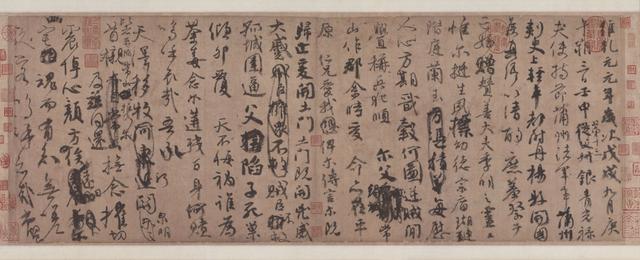 維乾元元年歲次戊戌九月庚
午朔三日壬申第十三從父銀青光祿
夫使持節蒲州諸軍事蒲州
刺史上輕車都尉丹楊縣開國
侯真卿以清酌庶羞祭于
亡姪贈贊善大夫季明之靈曰
惟爾挺生夙標幼德宗廟瑚璉
階庭蘭玉每慰
人心方期戩穀何圖逆賊閒
釁稱兵犯順爾父竭誠常
山作郡余時受命亦在平
原仁兄愛我俾爾傳言爾既
歸止爰開土門土門既開凶威
大蹙賊臣不救
孤城圍逼父陷子死巢
傾卵覆天不悔禍誰為
荼毒念爾遘殘百身何贖
嗚乎哀哉吾承
天澤移牧河關泉明
比者再陷常山攜爾
首櫬及茲同還撫念摧切
震悼心顏方俟遠日
卜爾幽宅魂而有知無嗟
久客嗚呼哀哉尚饗